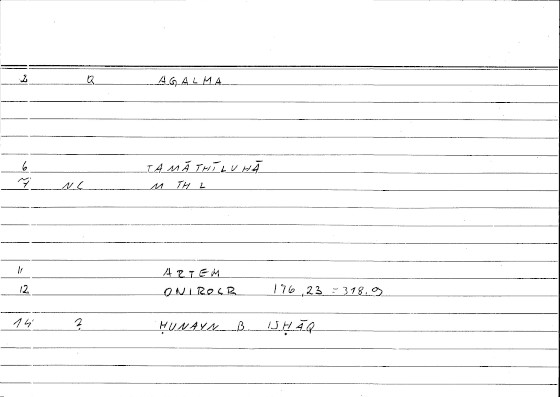 2 Q AGALMA
6 TAMĀTHĪLUHĀ
7 NC MTHL
11 ARTEM
12 ONIROCR 176,23=318.9
14 ? ḤUNAYN B. ISḤĀQ